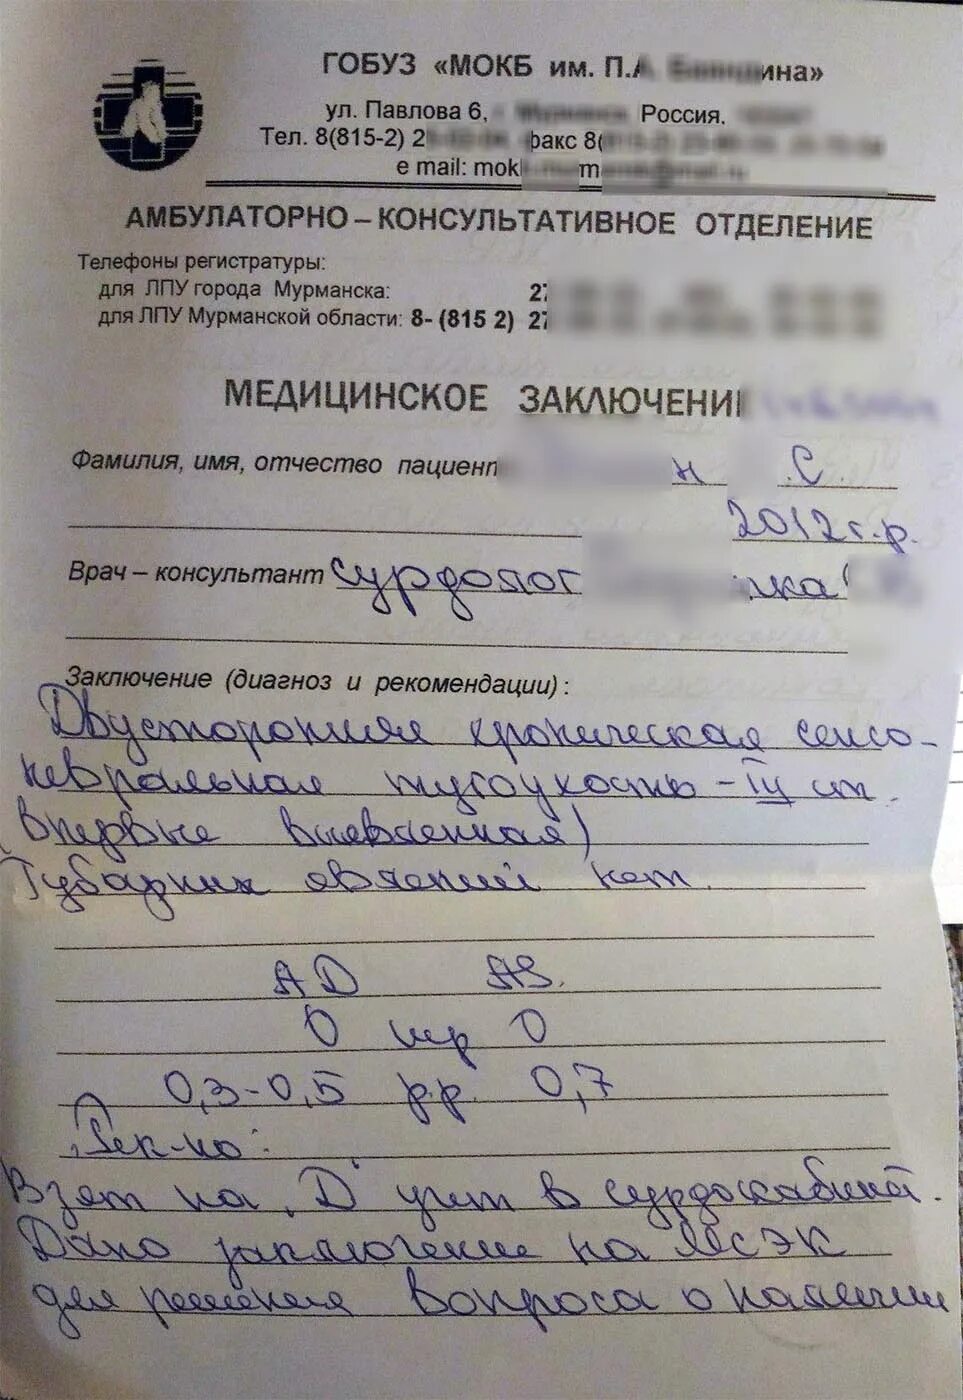 ГОБУЗ «МОКБ им. П.А. ина»
ул. Павлова 6, Россия.
Тел. 8(815-2) 2 факс 8(
e mail: mok m
АМБУЛАТОРНО – КОНСУЛЬТАТИВНОЕ ОТДЕЛЕНИЕ
Телефоны регистратуры:
для ЛПУ города Мурманска: 27
для ЛПУ Мурманской области: 8- (815 2) 27
МЕДИЦИНСКОЕ ЗАКЛЮЧЕНИ
Фамилия, имя, отчество пациент н С
2012 г.р.
Врач – консультант сурдолог
Заключение (диагноз и рекомендации) :
Двусторонняя хроническая сенсо-
невральная тугоухость – IV ст.
впервые выявленная)
Тубарних явлений нет.
АД AS.
0 шр 0
0,3-0,5 р.р. 0,7
Рек-но:
Взят на "Д" учет в сурдокабинет.
Дано заключение на МСЭК
для решения вопроса о наличии